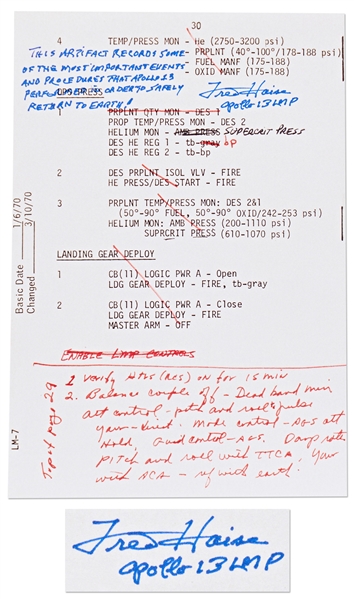 30
4 TEMP/PRESS MON - He (2750-3200 psi)
- PRPLNT (40°-100°/178-188 psi)
- FUEL MANF (175-188)
- OXID MANF (175-188)
THIS ARTIFACT RECORDS SOME
OF THE MOST IMPORTANT EVENTS
AND PROCEDURES THAT APOLLO 13
PERFORMED IN ORDER TO SAFELY
RETURN TO EARTH!
Fred Haise
Apollo 13 LMP
DPS PRESS
1 PRPLNT QTY MON - DES 1
PROP TEMP/PRESS MON - DES 2
HELIUM MON - AMB PRESS SUPERCRIT PRESS
DES HE REG 1 - tb-gray bp
DES HE REG 2 - tb-bp
2 DES PRPLNT ISOL VLV - FIRE
HE PRESS/DES START - FIRE
3 PRPLNT TEMP/PRESS MON: DES 2&1
(50°-90° FUEL, 50°-90° OXID/242-253 psi)
HELIUM MON: AMB PRESS (200-1110 psi)
SUPRCRIT PRESS (610-1070 psi)
LANDING GEAR DEPLOY
1 CB(11) LOGIC PWR A - Open
LDG GEAR DEPLOY - FIRE, tb-gray
2 CB(11) LOGIC PWR A - Close
LDG GEAR DEPLOY - FIRE
MASTER ARM - OFF
Basic Date 1/6/70
Changed 3/10/70
LM-7
ENABLE LMP CONTROLS
Top of page 29
1 Verify Htrs (RCS) on for 15 min
2. Balance couple off - Dead band min
att control - pitch and roll to pulse
yaw - direct. Mode control - AGS att
Hold, Guid control - AGS. Damp rates
Pitch and roll with TTCA, Yaw
with ACA - with earth.
Fred Haise
Apollo 13 LMP